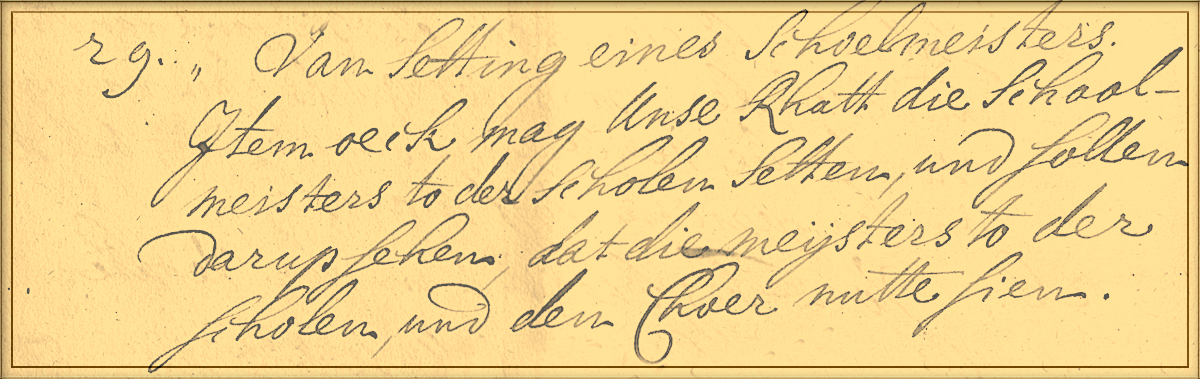 29. „ Van Setting eines Schoelmeisters.
Item oeck mag Unse Rhatt die School-
meisters to der Scholen Setten, und sollen
darup sehen, dat die meijsters to der
scholen, und dem Choer nutte sien.